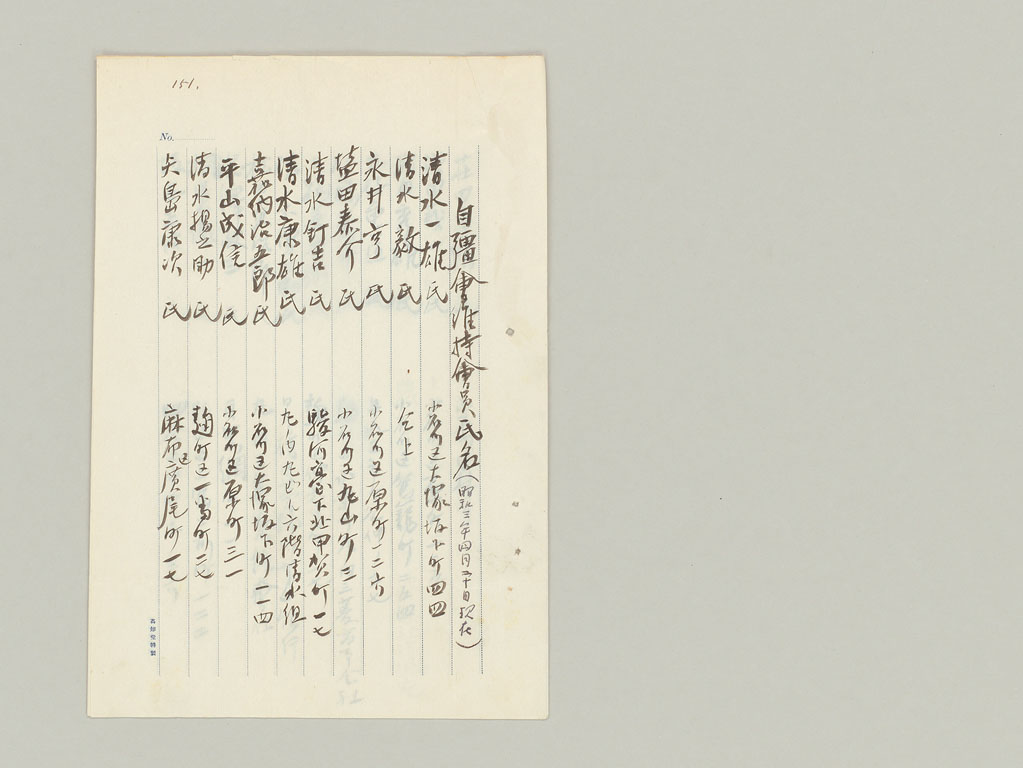 151.
No.
自彊會維持會員氏名(昭和三年四月三十日現在)
清水一雄氏 小石川区大塚坂下町四四
清水毅氏 仝上
永井亨氏 小石川区原町一二六
塩田泰介氏 小石川区丸山町三
清水釘吉氏 駿河臺下北甲賀町一七
清水康雄氏 丸ノ内丸ビル六階清水組
嘉納治五郎氏 小石川区大塚坂下町一一四
平山成信氏 小石川区原町三一
清水揚之助氏 麹町区一番町二七
矢島康次氏 麻布区廣尾町一七